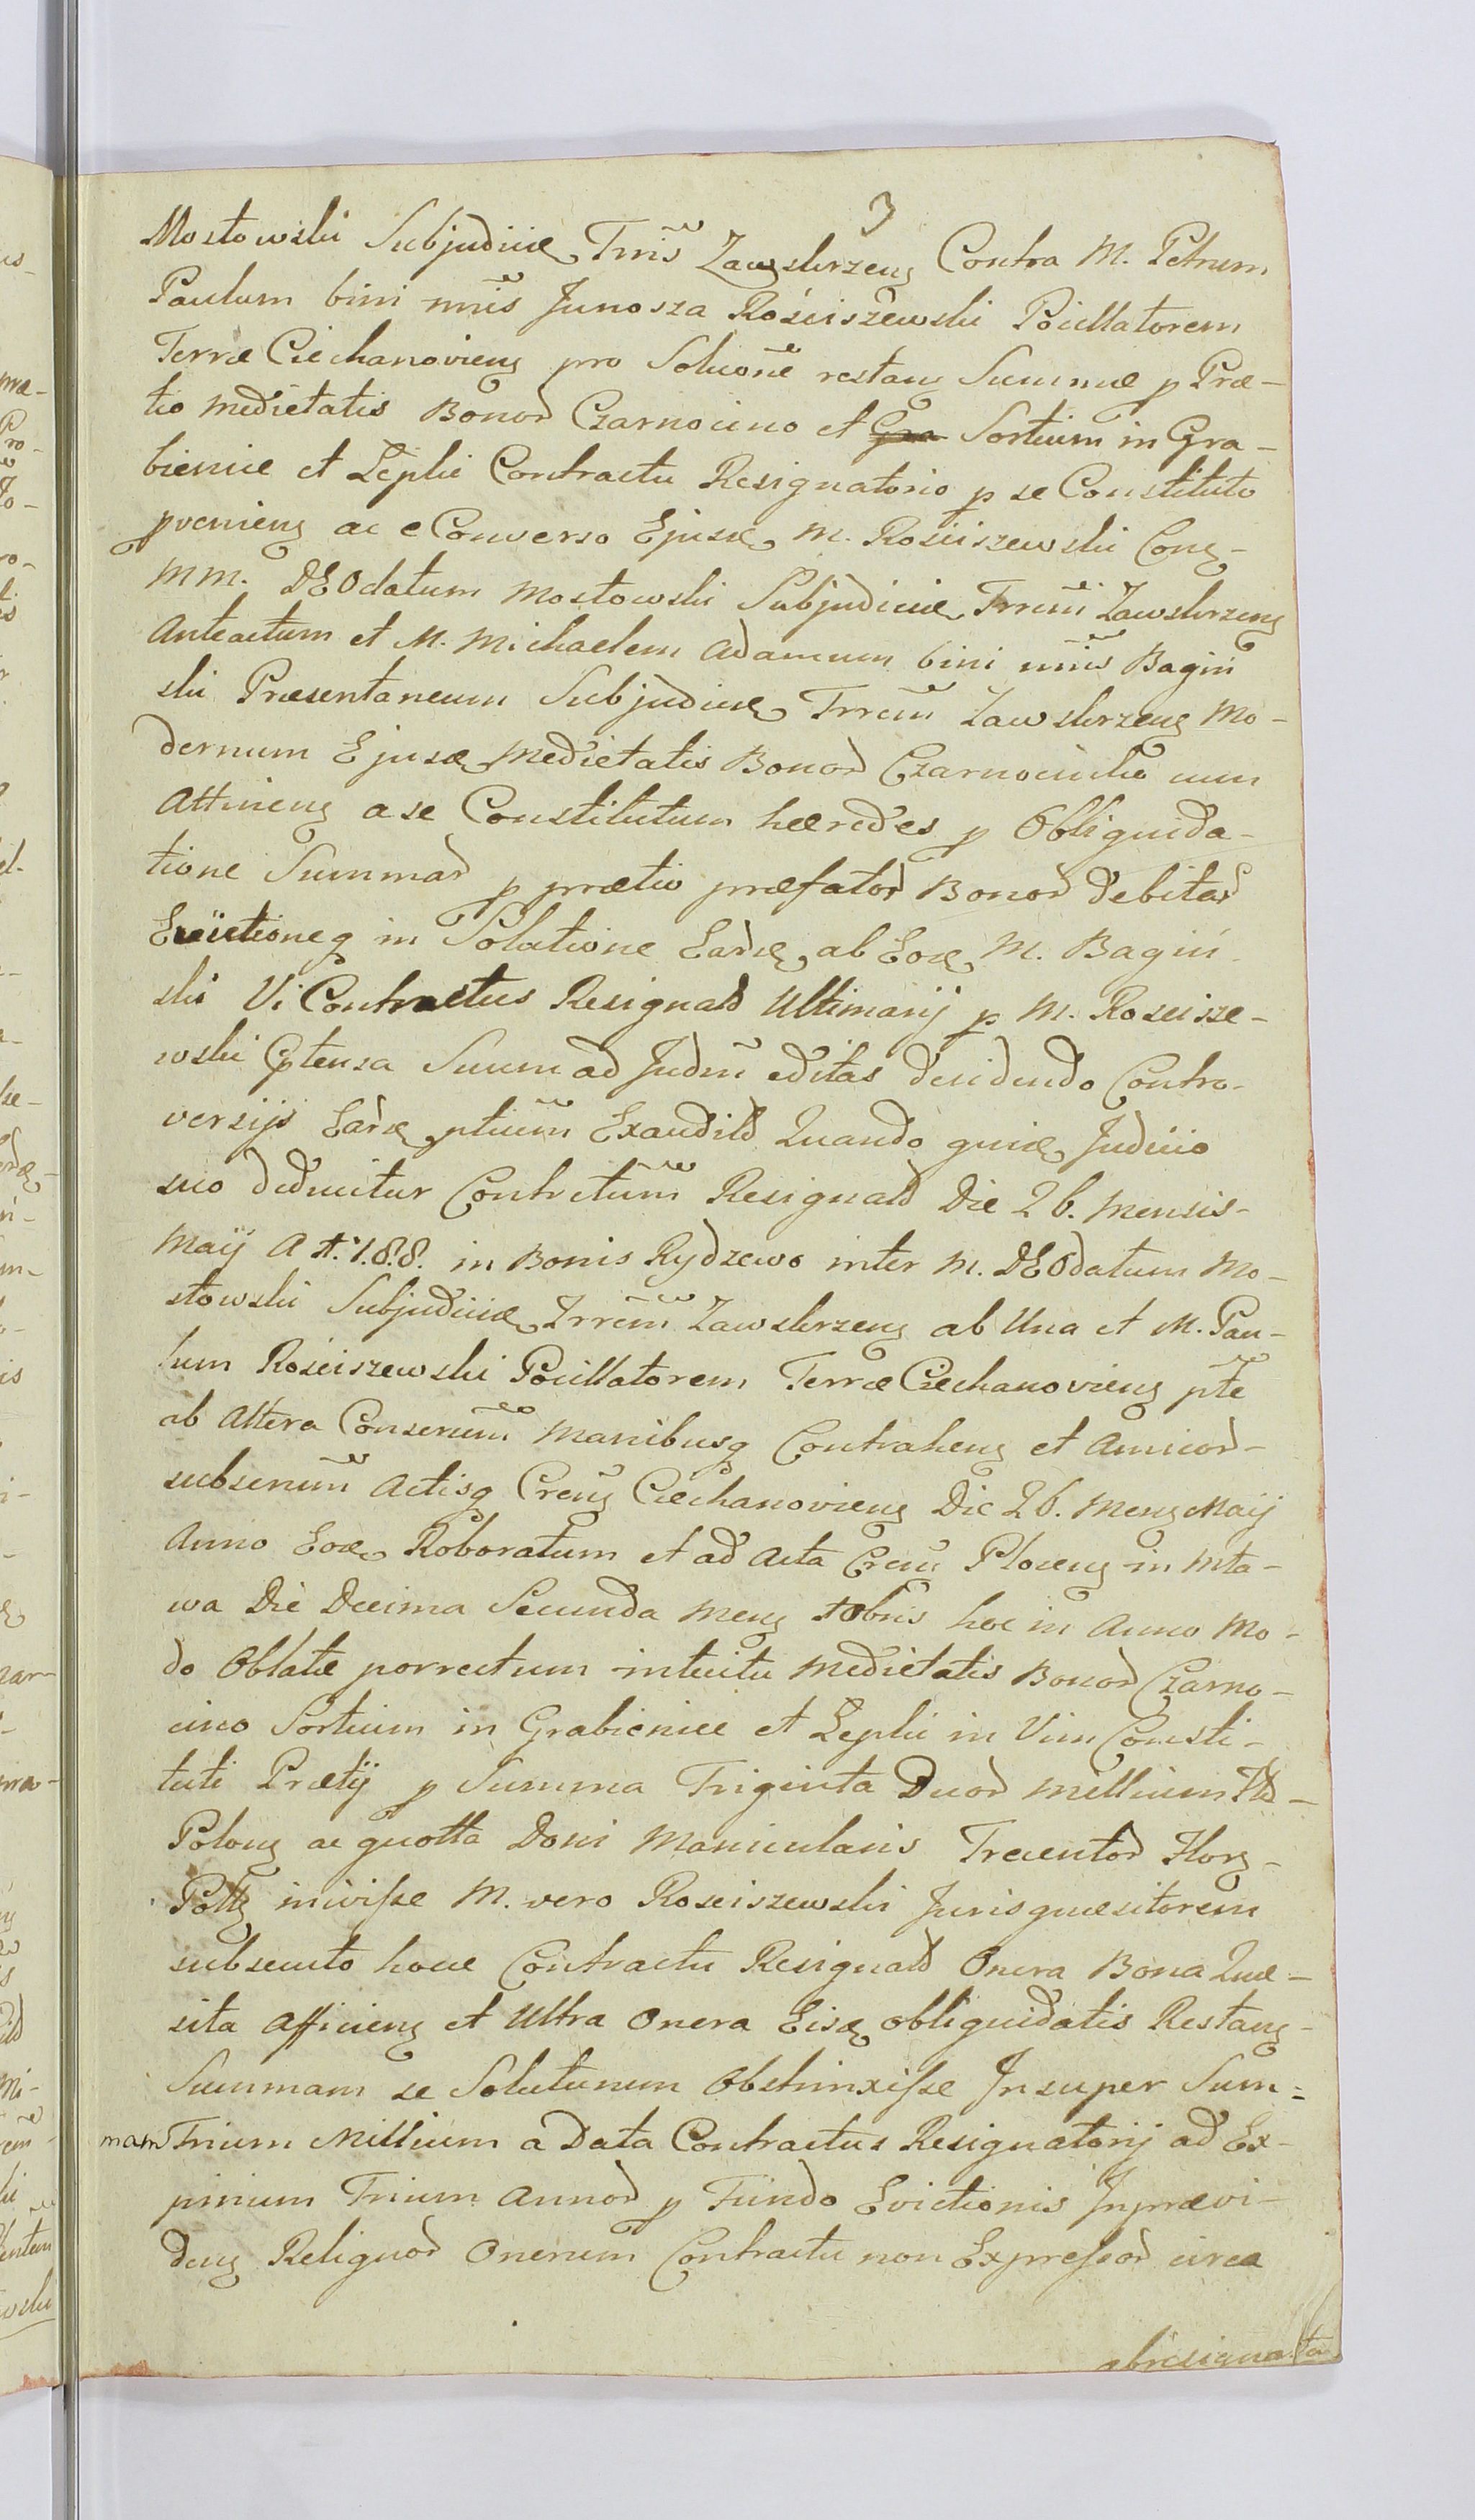 3
Mostowski Subjudice Trris Zawskrzen Contra M. Petrum
Paulum bini nnis Junosza Rościszewski Pocillatorem
Terræ Ciechanovien pro Solucone restan Summæ p Præ-
tio medietatis Bonor Czarnocino et Gra Sortium in Gra-
bienice et Lepki Contractu Resignatorio p se Constituto
pvenien ac e Converso Ejusd M. Rosciszewski Con-
MM. DEOdatum Mostowski Subjudice Trrem Zawskrzen
Anteactum et M. Michaelem Adamum bini nnis Bagiń
ski Præsentaneum Subjudice Trrem Zawskrzen Mo-
dernum Ejusd Medietatis Bonor Czarnocinko cum
Attinen a se Constitutum hæredes p Obliquida-
tione Summar p prætio præfator Bonor debitar
Evictioneq in Solutione Eard ab Eod M. Bagiń
ski Vi Contractus Resignald Ultimarij p M. Roscisze-
wski Cptensa Suum ad Judm editas decidendo Contro-
versijs Eard ptium Exaudild Quando quid Judicio
suo deducitur Contrctum Resignald Die 26. Mensis-
Maij A t. 788. in Bonis Rydzewo inter M. DEOdatum Mo-
stowski Subjudice Trrem Zawskrzen ab Una et M. Pau-
lum Rosciszewski Pocillatorem Terræ Ciechanovien pte
ab Altera Conserum Manibusq Contrahen et Amicor-
subserum Actisq Cren Ciechanovien Die 26. Men Maij
Anno Eod Roboratum et ad Acta Cren Plocen in Mła-
wa Die Decima Secunda Men 10bris hoc in Anno Mo-
do Oblatæ porrectum intuitu Medietatis Bonor Czarno-
cino Sortium in Grabienice et Lepki in Vim Consti-
tuti Prætij p Summa Triginta Duor Millium Fld-
Polon ac quotta Doni Manicularis Trecentor Flor-
Poll inivisse M. vero Rosciszewski Jurisquæsitorem
subsecuto hocce Contractu Resignald Onera Bona Quæ-
sita Afficien et Ultra Onera Eisd obliquidatis Restan-
Summam se Soluturum Obstrinxisse Insuper Sum=
mam Trium Millium a Data Contractus Resignatorij ad Ex-
pirium Trium Annor p Fundo Evictionis Inprævi-
den Reliquor Onerum Contractu non Expressor circa
abresignata